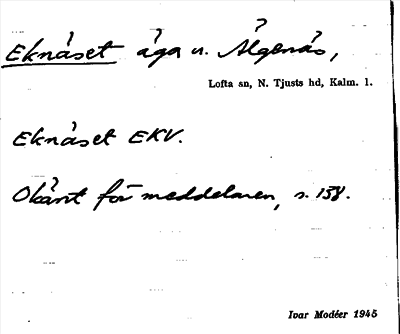 Eknäset äga u. Älgenäs,
Lofta sn, N. Tjusts hd, Kalm. l.
Eknäset EKV.
Okänt för meddelaren, s. 138.
Ivar Modéer 1945